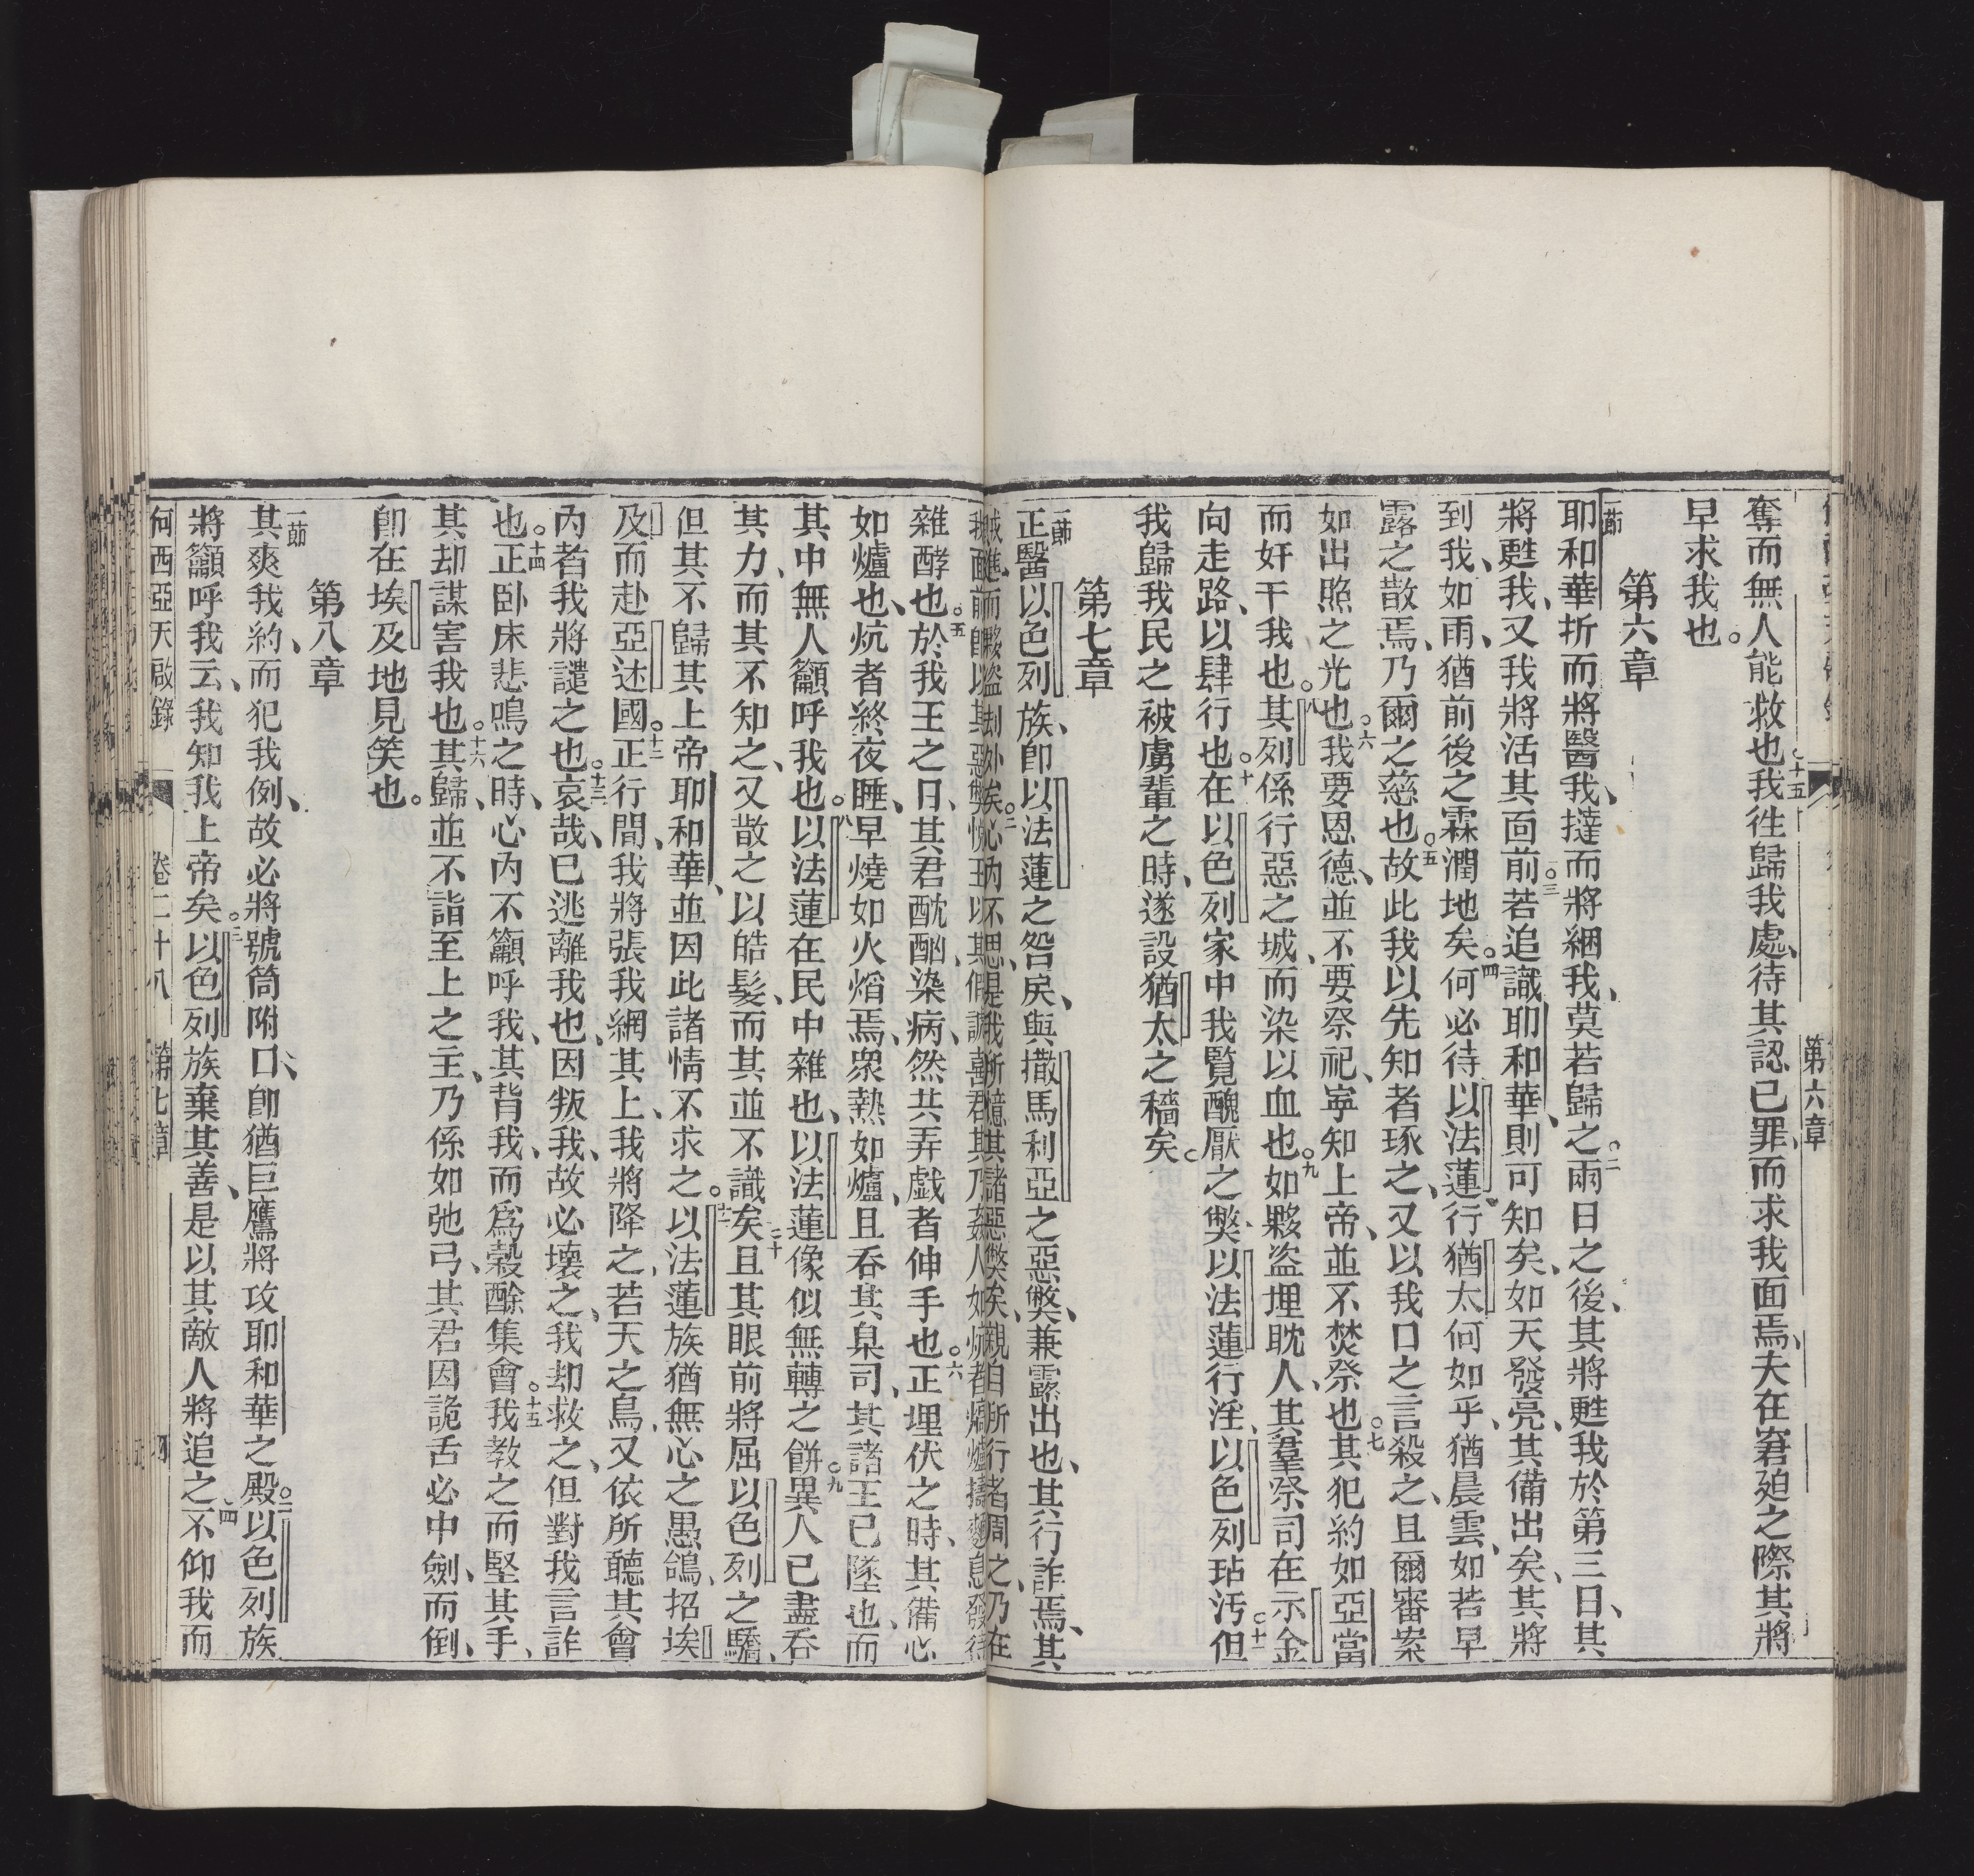 第六章
奪而無人能救也○十五我徃歸我處、待其認己罪、而求我面焉、夫在窘廹之際其將
早求我也。
第六章
一節耶和華折而將醫我、撻而將綑我、莫若歸之○二兩日之後、其將甦我於第三日、其
將甦我、又我將活其面前○三若追識耶和華、則可知矣、如天發亮、其備出矣、其將
到我、如雨、猶前後之霖潤地矣○四何必待以法蓮行猶太何如乎、猶晨雲、如若早
露之散焉、乃爾之慈也○五故此我以先知者琢之、又以我口之言殺之、且爾審案
如出照之光也○六我要恩德、並不要祭祀、寧知上帝、並不焚祭也○七其犯約如亞當
而奸干我也○八其列係行惡之城、而染以血也○九如夥盜埋耽人、其羣祭司在示金
向走路、以肆行也○十在以色列家中我覧醜厭之獘、以法蓮行淫、以色列玷汚○十一但
我歸我民之被虜輩之時、遂設猶太之穡矣。
第七章
一節正醫以色列族、卽以法蓮之咎戾、與撒馬利亞之惡獘、兼露出也、其行詐焉、其
賊進、而夥盜刦外矣○二心內不思、是我所憶其諸惡獘矣、親自所行者周之、乃在
我面前○以其惡獘悅王以其假謊喜君其乃姦人如炕者燒爐搗麪息發待
雜酵也○五於我王之日、其君酖酗、染病、然共弄戯者伸手也○六正埋伏之時、其備心
如爐也、炕者終夜睡、早燒如火熖焉、衆熱如爐、且吞其臬司、其諸王已墜也、而
其中無人籲呼我也○八以法蓮在民中雜也、以法蓮像似無轉之餅○九異人已盡吞
其力、而其不知之、又散之以皓髮、而其並不識矣○十且其眼前將屈以色列之驕、
但其不歸其上帝耶和華、並因此諸情不求之○十一以法蓮族猶無心之愚鴿、招埃
及而赴亞述國○十二正行間、我將張我網其上、我將降之、若天之鳥、又依所聽其會
內者我將譴之也○十三哀哉、已逃離我也、因叛我、故必壞之、我却救之、但對我言詐
也○十四正卧床悲鳴之時、心內不籲呼我、其背我、而爲穀酴集會○十五我教之而堅其手、
其却謀害我也○十六其歸、並不詣至上之主、乃係如弛弓、其君因詭舌必中劍而倒、
卽在埃及地見笑也。
第八章
一節其爽我約、而犯我例、故必將號筒附口、卽猶巨鷹將攻耶和華之殿○二以色列族
將籲呼我云、我知我上帝矣○三以色列族棄其善、是以其敵人將追之○四不仰我而
何西亞天啟錄 卷二十八 第七章